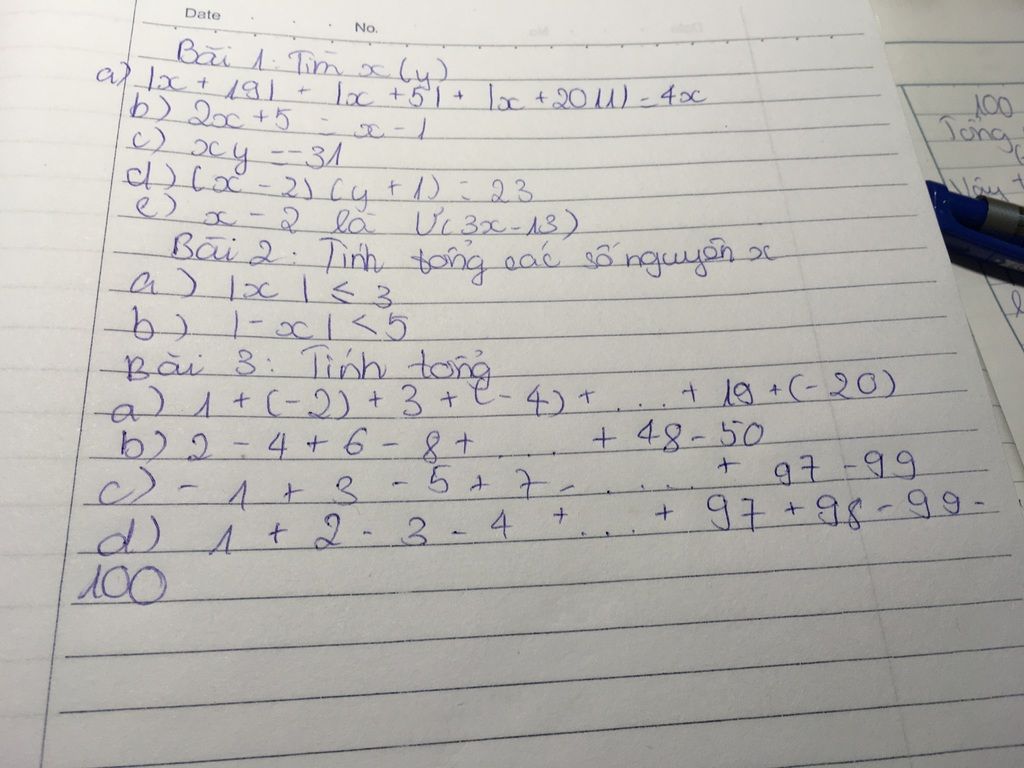 Date
No.
Bài 1: Tìm x (y)
a) |x + 19| + |x + 5| + |x + 2011| = 4x
b) 2x + 5 = x - 1
c) xy = -31
d) (x - 2) (y + 1) = 23
e) x - 2 là Ư(3x - 13)
Bài 2: Tính tổng các số nguyên x
a) |x| ≤ 3
b) |-x| < 5
Bài 3: Tính tổng
a) 1 + (-2) + 3 + (-4) + .... + 19 + (-20)
b) 2 - 4 + 6 - 8 + .... + 48 - 50
c) - 1 + 3 - 5 + 7 - ..... + 97 - 99
d) 1 + 2 - 3 - 4 + ... + 97 + 98 - 99 -
100
100
Tổng
Vậy